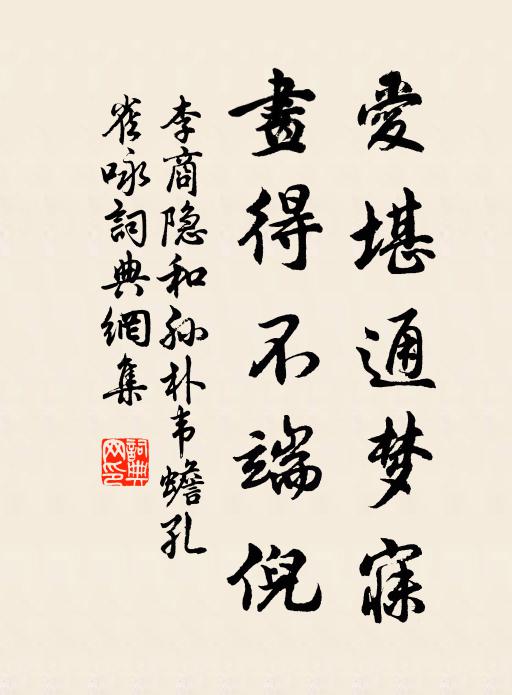 愛堪通梦寐
畫得不端倪
李商隐和孙朴韦蟾孔
雀咏詞典網集
詞典
网印